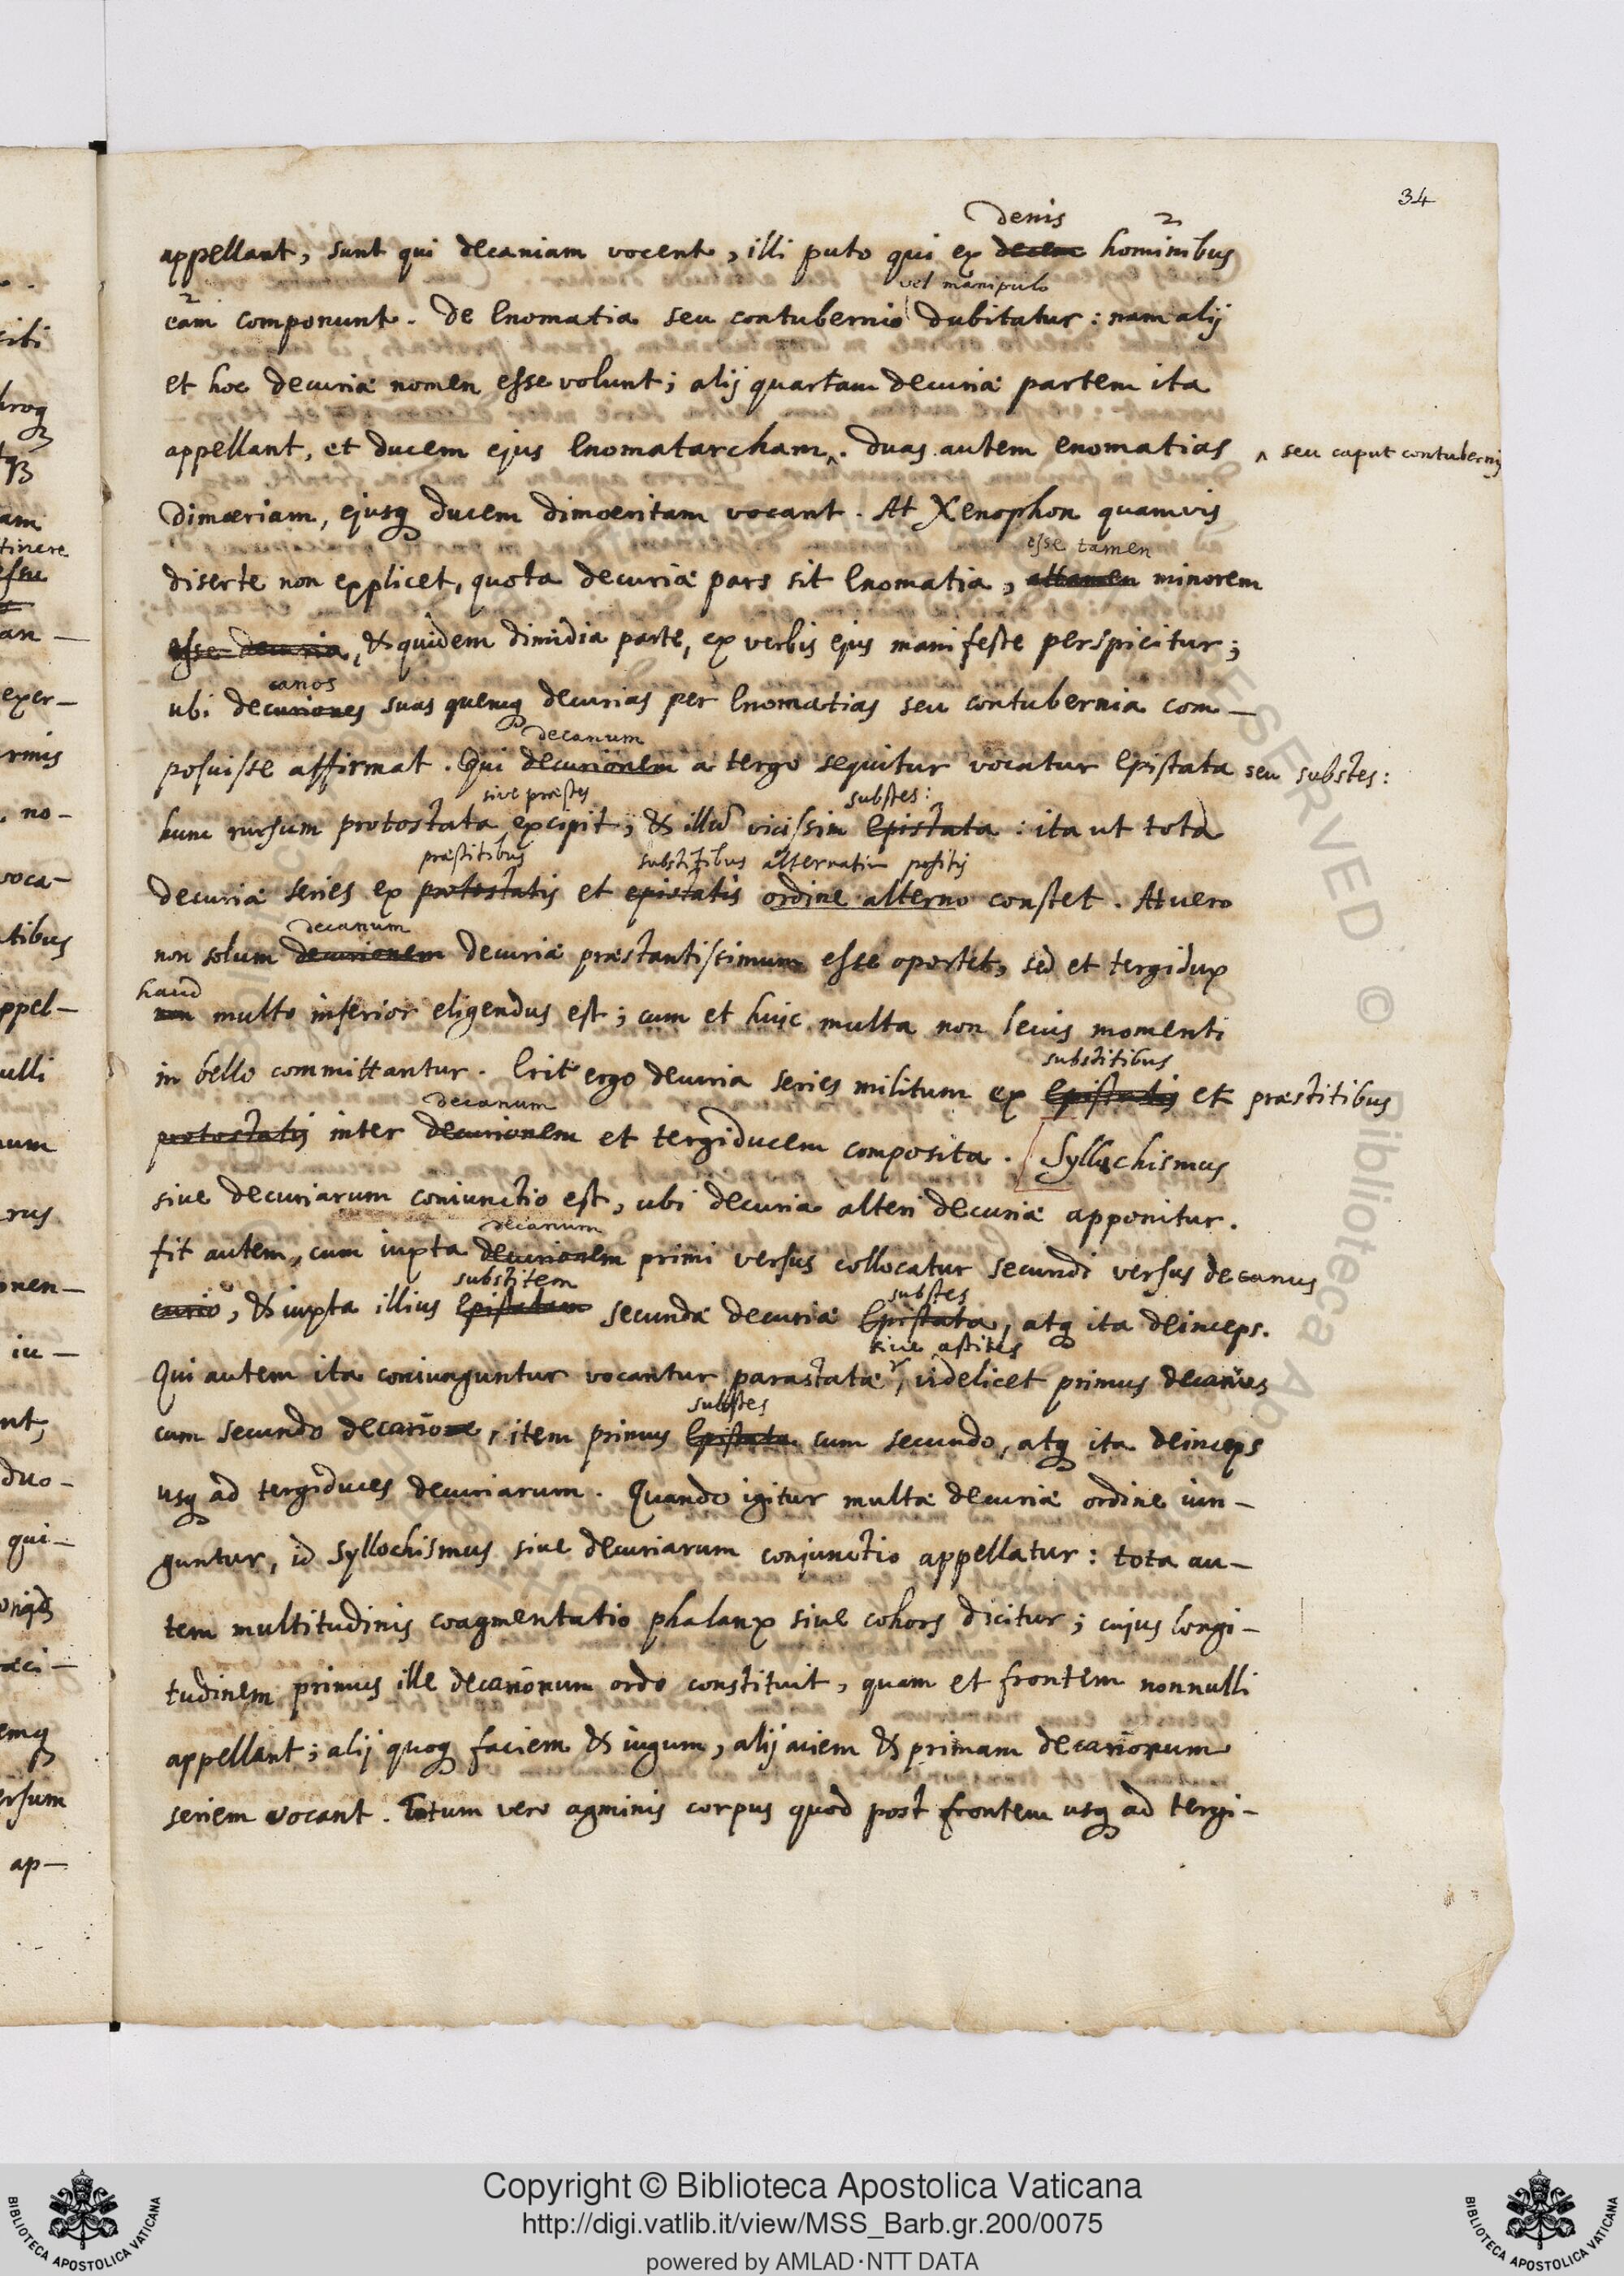 34
denis 2
appellant, sunt qui decaniam vocent, illi puto qui ex decem hominibus
2 vel manipulo
eam componunt. De Enomatia seu contubernio dubitatur: nam alij
et hoc decuriæ nomen esse volunt; alij quartam decuriæ partem ita
appellant, et ducem ejus Enomatarcham^. Duas autem enomatias ^ seu caput contubernij
Dimœriam, ejusq ducem dimœritam vocant. At Xenophon quamvis
esse tamen
diserte non explicet, quota decuriæ pars sit Enomatia, attamen minorem
esse decuria, & quidem dimidia parte, ex verbis ejus manifeste perspicitur;
canos
ubi decuriones suas quemq decurias per Enomatias seu contubernia com-
decanum
posuisse affirmat. Qui decurionem a tergo sequitur vocatur Epistata seu substes:
sive præstes substes:
hunc rursum protostata excipit; & illū vicissim Epistata: ita ut tota
præstitibus substitibus alternatim positis
decuriæ series ex protostatis et epistatis ordine alterno constet. At vero
decanum
non solum decurionem decuriæ præstantissimum esse oportet, sed et tergidux
haud
non multo inferior eligendus est; cum et huic multa non levis momenti
substitibus
in bello committantur. Erit ergo decuria series militum ex Epistatis et præstitibus
decanum
protostatis inter decurionem et tergiducem composita. [Syllochismus
sive decuriarum coniunctio est, ubi decuria alteri decuriæ apponitur.
decanum
fit autem, cum iuxta decurionem primi versus collocatur secundi versus decanus
substitem substes
curio, & iuxta illius Epistatam secundæ decuriæ Epistata, atq ita deinceps.
sive astites
Qui autem ita coniunguntur vocantur parastatæ, videlicet primus decanus
substes
cum secundo decano, item primus Epistata cum secundo, atq ita deinceps
usq ad tergiduces decuriarum. Quando igitur multæ decuriæ ordine iun-
guntur, id syllochismus sive decuriarum conjunctio appellatur: tota au-
tem multitudinis coagmentatio phalanx sive cohors dicitur; cujus longi-
tudinem primus ille decanorum ordo constituit, quam et frontem nonnulli
appellant; alij quoq faciem & iugum, alij aciem & primam decanorum
seriem vocant. Totum vero agminis corpus quod post frontem usq ad tergi-
Copyright © Biblioteca Apostolica Vaticana
http://digi.vatlib.it/view/MSS_Barb.gr.200/0075
powered by AMLAD·NTT DATA
BIBLIOTECA APOSTOLICA VATICANA
BIBLIOTECA APOSTOLICA VATICANA